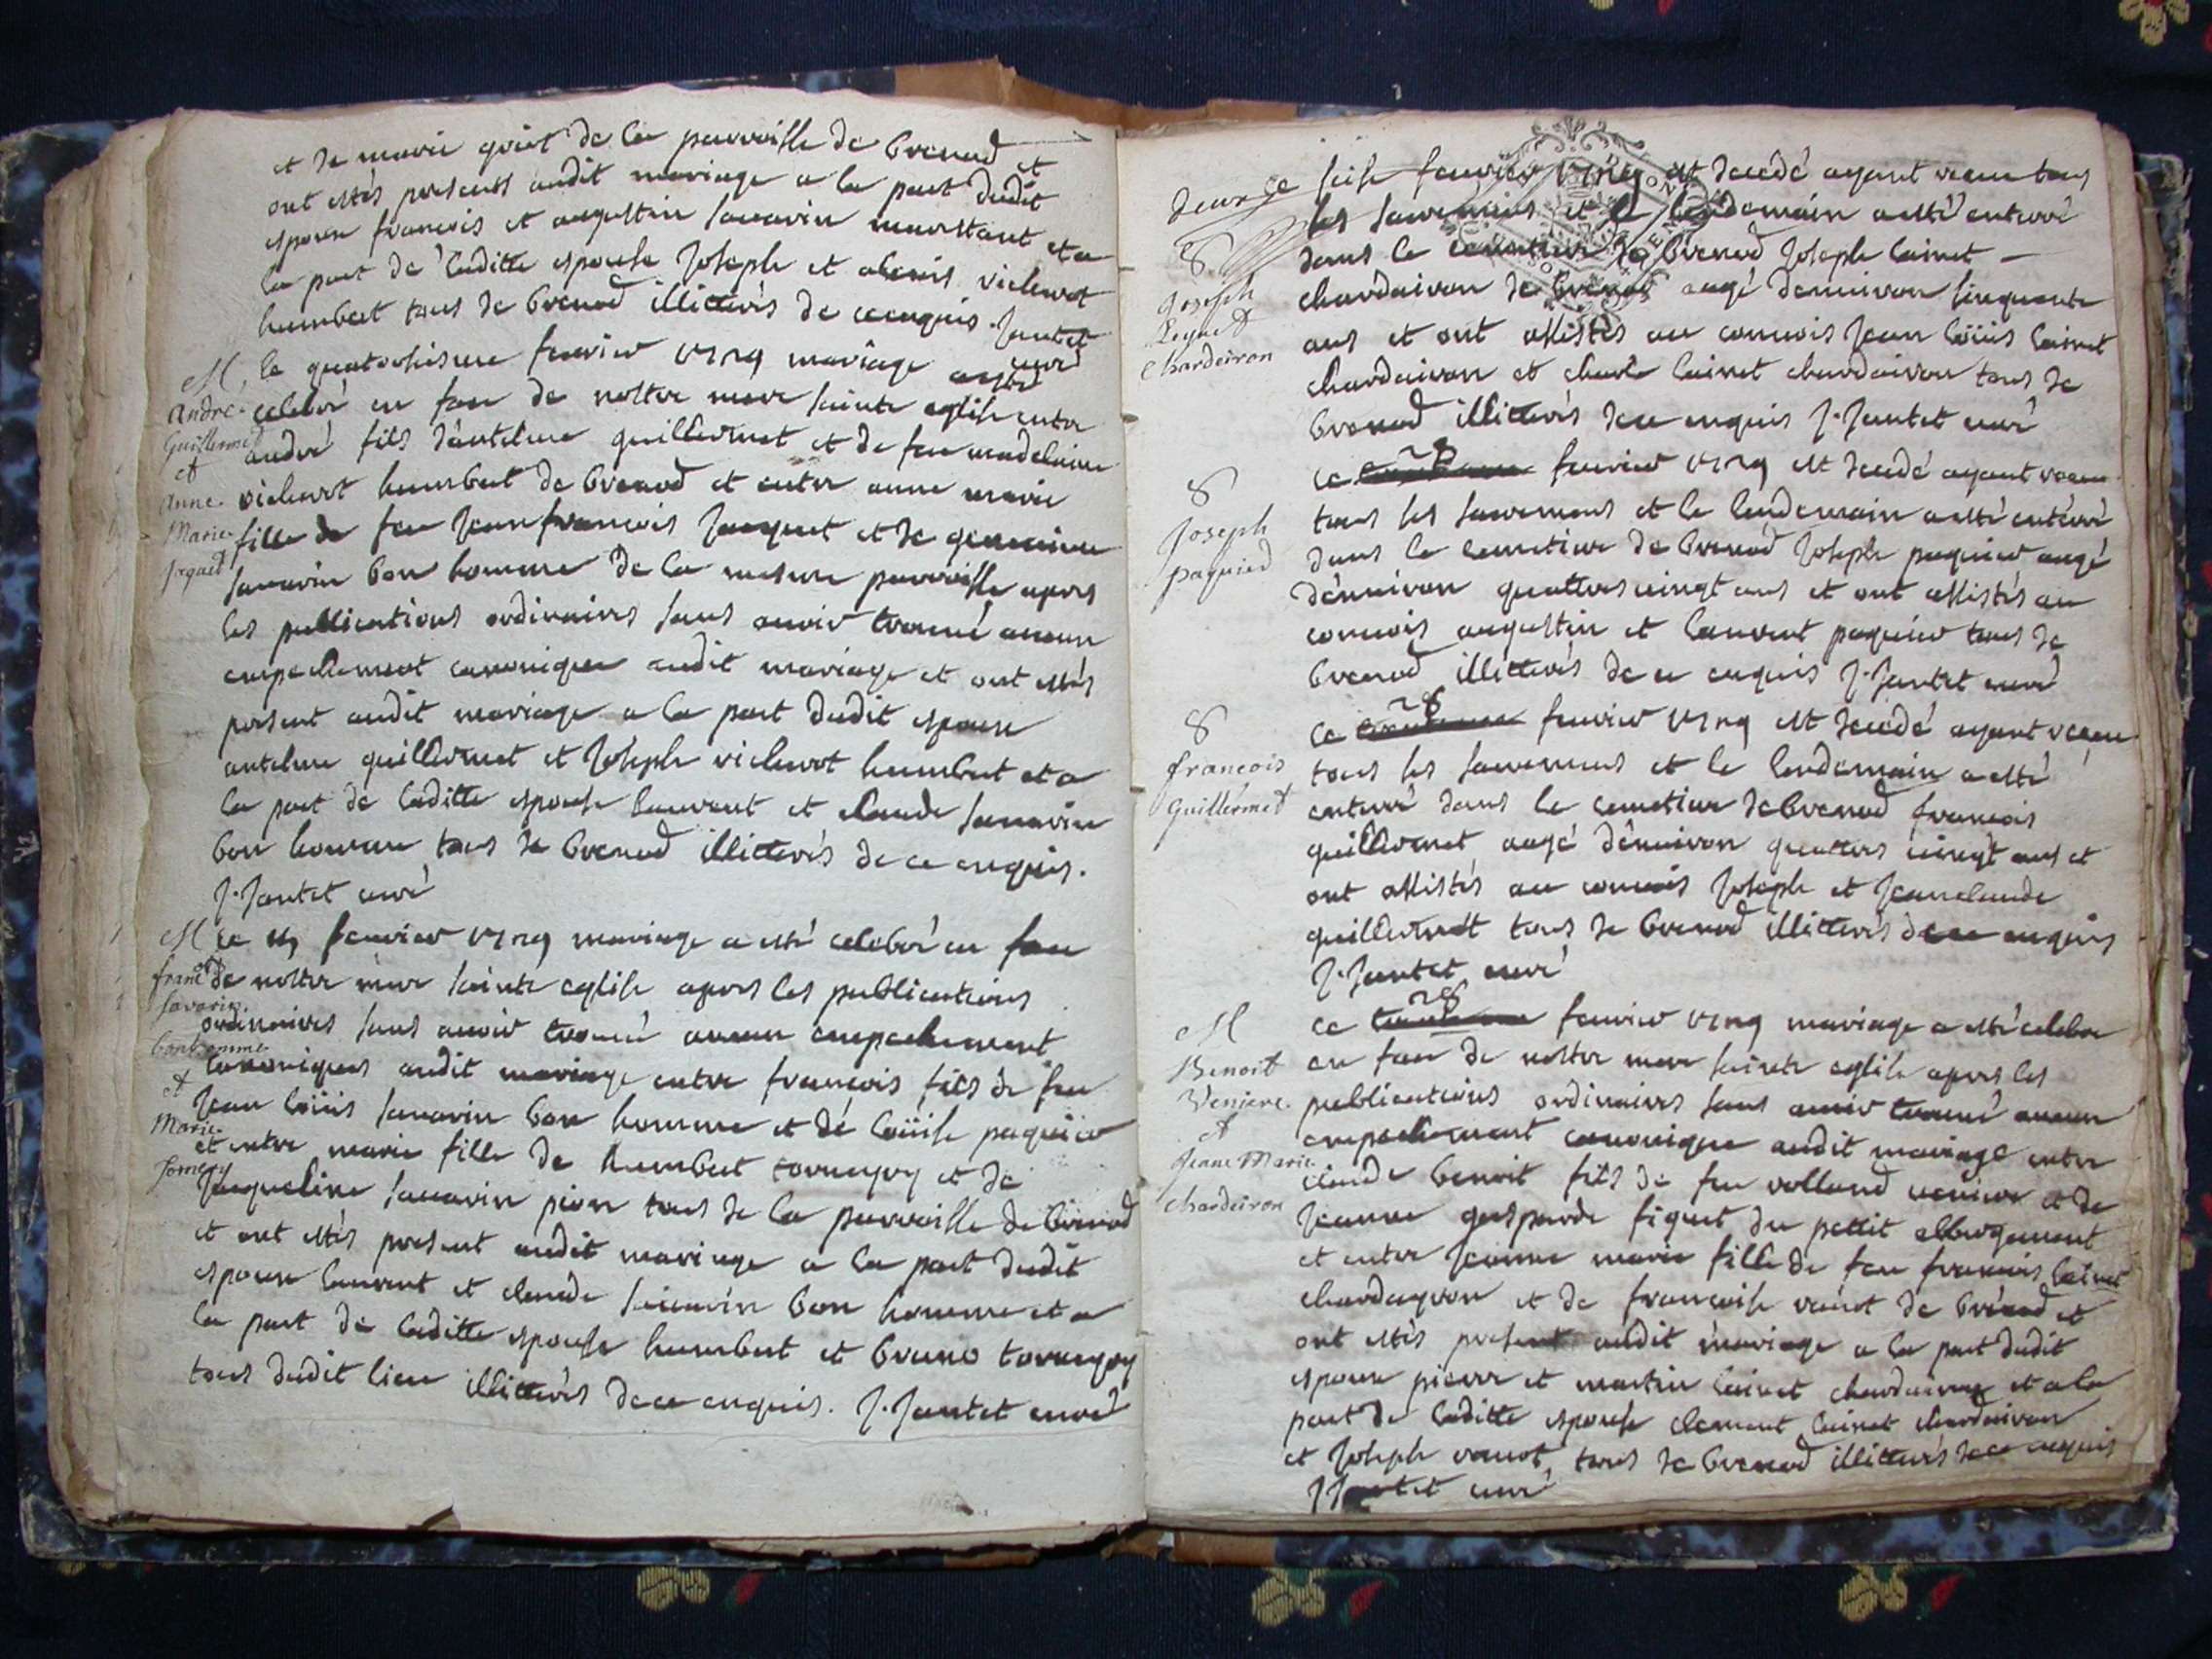 et de marie goiot de la parroisse de brenod et
ont estés presents audit mariage a la part dudit
espoux francois et augustin savarin marottant et a
la part de laditte espouse Joseph et alexis vieluiot
humbert tous de brenod illitterés de ce enquis. Jantet
curé
M
le quatorzisme fevrier 1729 mariage a esté
André
Guillermet
et
Anne
Marie
Joquet
celebré en face de nostre mere sainte eglise entre
andré fils d'antelme guillermet et de feu madelaine
vieluiot humbert de brenod et entre anne marie
fille de feu Jean francois Jacquet et de
savarin bon homme de la mesme parroisse apres
les publications ordinaires sans avoir trouvé aucun
empechement canonique audit mariage et ont estés
present audit mariage a la part dudit espoux
antelme guillermet et Joseph vieluiot humbert et a
la part de laditte espouse laurent et claude savarin
bon homme tous de brenod illitterés de ce enquis.
J. Jantet curé
M
franc
Savarin
bonhomme
et
Marie
Jomery
ce fevrier 1729 mariage a esté celebré en face
de nostre mere sainte eglise apres les publications
ordinaires sans avoir trouvé aucun empechement
canoniques audit mariage entre francois fils de feu
Jean loüis savarin bon homme et de loüise paquier
et entre marie fille de humbert et de
Jacqueline savarin pion tous de la parroisse de brenod
et ont estés present audit mariage a la part dudit
espoux laurent et claude savarin bon homme et a
la part de laditte espouse humbert et bruno
tous dudit lieu illitterés de ce enquis. J. Jantet curé
S
Joseph
Chardeiron
seise fevrier 1729 est decedé ayant receu tous
les sacremens et le lendemain a esté enterré
dans le cemetiere de brenod Joseph lainet
chardairon de brenod aagé denviron sinquante
ans et ont assistés au convois Jean loüis lainet
chardairon et charle lainet chardairon tous de
brenod illitterés de ce enquis J. Jantet curé
S
Joseph
paquier
28
ce fevrier 1729 est decedé ayant receu
tous les sacremens et le lendemain a esté enterré
dans le cemetiere de brenod Joseph paquier aagé
d'environ quattres vingt ans et ont assistés au
convois augustin et laurent paquier tous de
brenod illitterés de ce enquis J. Jantet curé
S
francois
Guillermet
28
ce fevrier 1729 est decedé ayant receu
tous les sacremens et le lendemain a esté
enterré dans le cemetiere de brenod francois
guillermet aagé d'environ quattres vingt ans et
ont assistés au convois Joseph et Jean claude
guillermet tous de brenod illitterés de ce enquis
J. Jantet curé
M
Benoit
Veniere
et
Jeanne Marie
chardeiron
28
ce fevrier 1729 mariage a esté celebre
en face de nostre mere sainte eglise apres les
publications ordinaires sans avoir trouvé aucun
empechement canonique audit mariage entre
claude benoit fils de feu rolland et de
Jeanne gasparde figuet du petit abbergement
et entre Jeanne marie fille de feu francois lainet
chardayron et de francoise de brenod et
ont estés present audit mariage a la part dudit
espoux pierre et martin lainet chardairon et a la
part de laditte espouse clement lainet chardairon
et Joseph tous de brenod illitterés de ce enquis
J Jantet curé